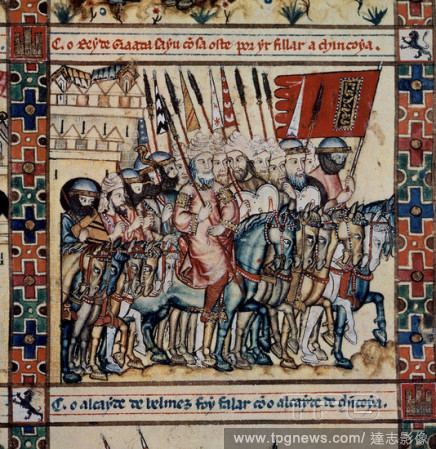 C. o Rey de Graada sayu cõ sa oste por yr fillar a chincoya.
C. o alcayde de belmez foy falar cõ o alcayde de chicoya.
www.tpgnews.com/ 達志影像